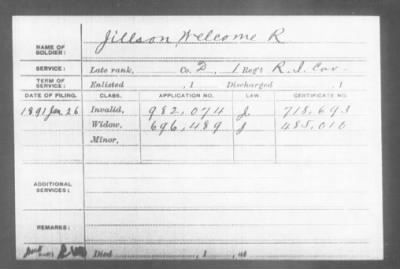 NAME OF SOLDIER: Jillson Welcome R
SERVICE: Late rank, Co. D, 1 Reg't R. I. Cav.
TERM OF SERVICE: Enlisted , 1 Discharged , 1
DATE OF FILING. CLASS. APPLICATION NO. LAW. CERTIFICATE NO.
1891 Jan 26 Invalid, 982,074 J. 718,693
Widow, 696,489 J 485,010
Minor,
ADDITIONAL SERVICES:
REMARKS:
Died , 1 , at